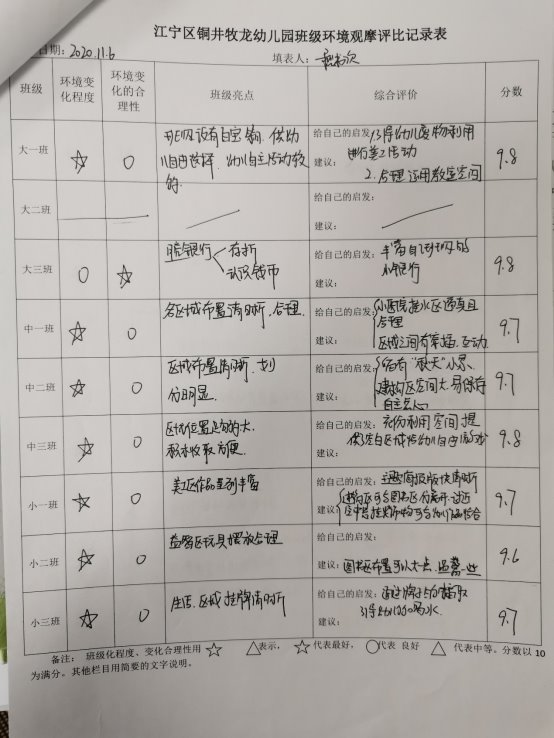 江宁区铜井牧龙幼儿园班级环境观摩评比记录表
日期：2020.11.6 填表人：
班级 环境变化程度 环境变化的合理性 班级亮点 综合评价 分数
大一班 ☆ ○
班级设有自主 供幼
儿自由选择，幼儿自主活动较
的.
给自己的启发：1.引导幼儿废物利用
进行美工活动
建议：2.合理运用教室空间
9.8
大二班
给自己的启发：
建议：
大三班 ○ ☆
银行 存折
认识钱币
给自己的启发：丰富自己班级的
小银行
建议：
9.8
中一班 ☆ ○
各区域布置清晰，合理.
给自己的启发：小医院挂水区逼真且
合理
建议：区域之间有穿插，互动
9.7
中二班 ☆ ○
区域布置清晰，划
分明显.
给自己的启发：各有“秋天”小景、
建议：建构区空间大，易保存
9.7
中三班 ☆ ○
区域位置足够的大，
积木收取方便.
给自己的启发：充份利用空间，提
供空白区域给幼儿自由游戏
建议：
9.8
小一班 ☆ ○
美工区作品呈列丰富
给自己的启发：主题海报版块清晰
建议：
9.7
小二班 ☆ ○
益智区玩具摆放合理
给自己的启发：
建议：图书区布置可以大一点，温馨一些
9.6
小三班 ☆ ○
生活、区域挂牌清晰
给自己的启发：通过
引导幼儿 喝水.
建议：
9.7
备注： 班级化程度、变化合理性用 ☆ △表示， ☆ 代表最好， ○代表 良好 △ 代表中等。分数以 10
为满分。其他栏目用简要的文字说明。